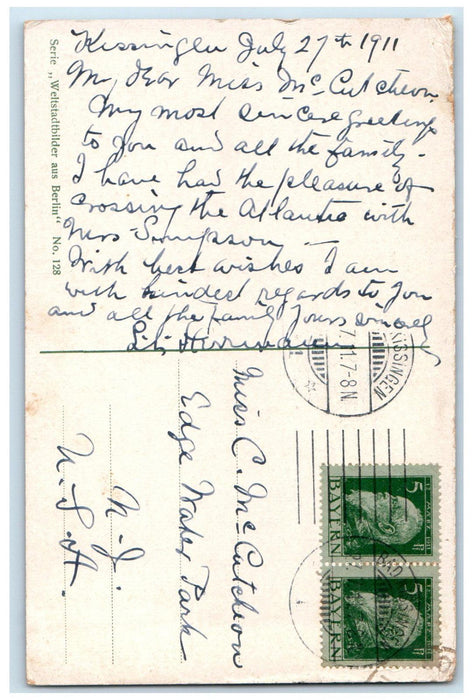 Kissingen July 27th 1911
My Dear Miss McCutcheon
My most sincere greetings
to you and all the family -
I have had the pleasure of
crossing the Atlantic with
Mrs Simpson -
With best wishes I am
with kindest regards to you
and all the family yours
Serie „Weltstadtbilder aus Berlin“ No. 128
Miss C. McCutcheon
Edge Water Park
N. J.
U.S.A.
7.11.7-8N.
KISSINGEN
5
BAYERN
5
BAYERN